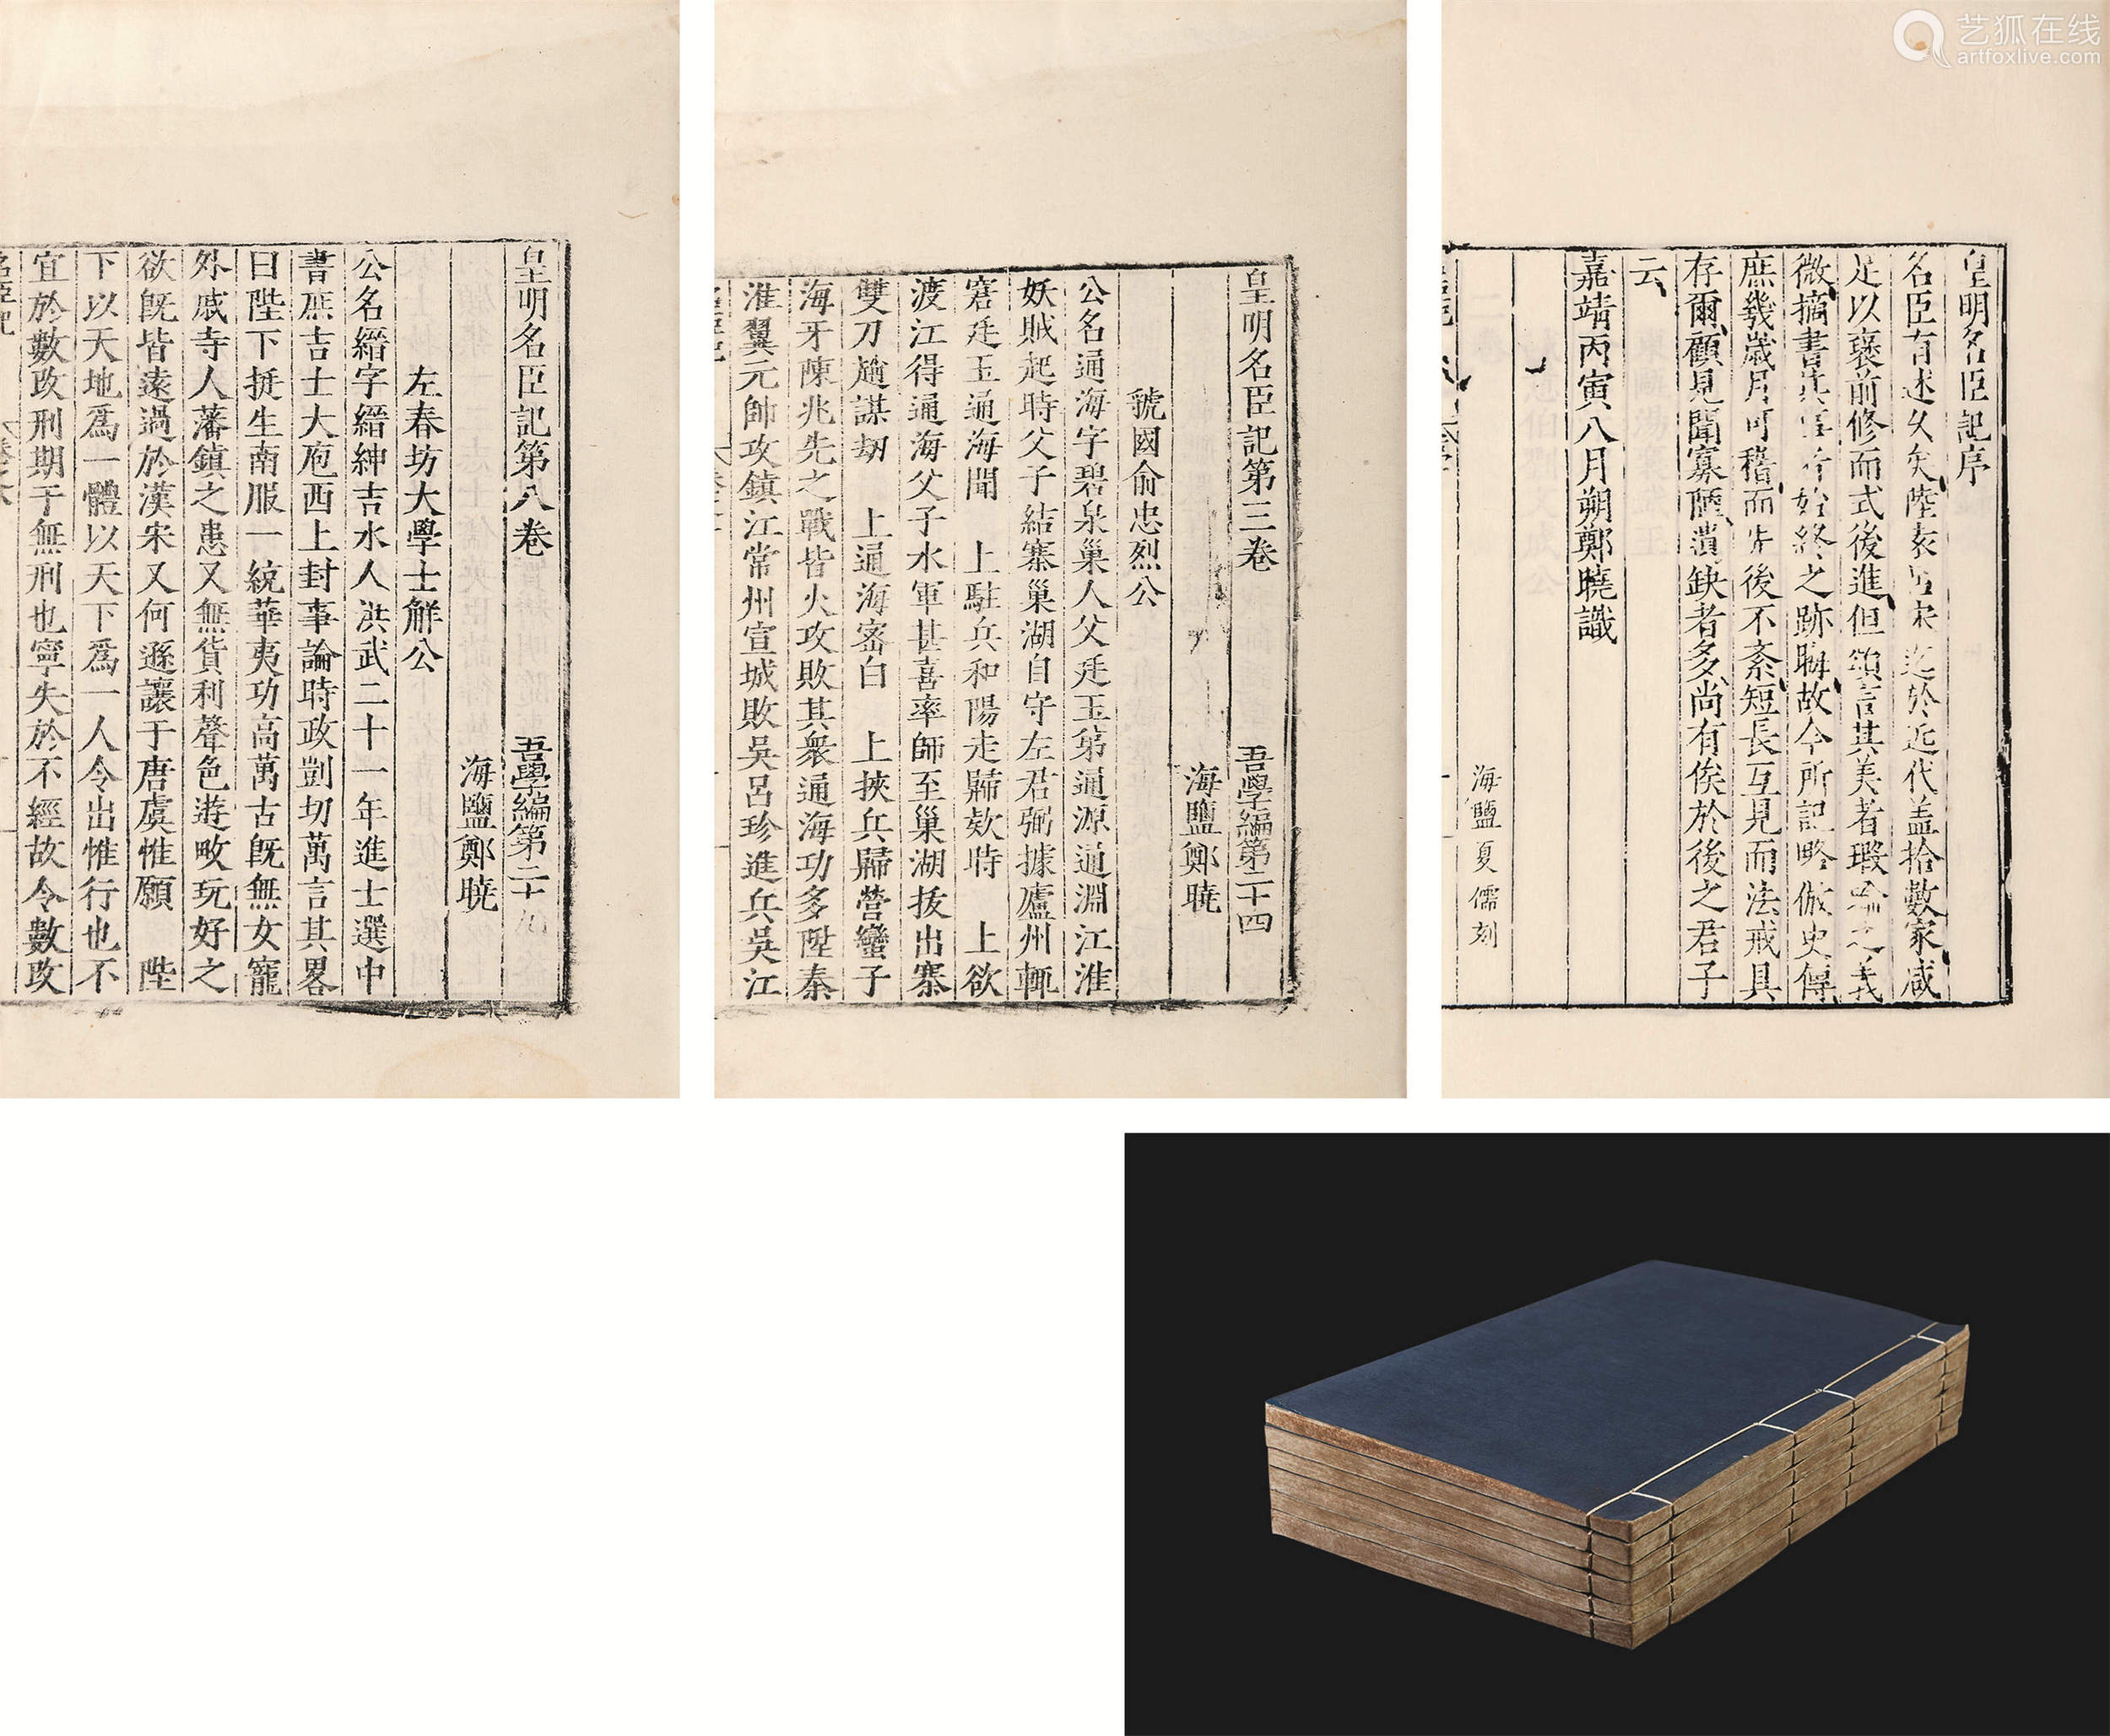 艺狐在线
artfoxlive.com
皇明名臣記序
名臣有述久矣陸
於近代蓋拾數家咸
足以褒前修而式後進但頌言其美者瑕
之義
微摘書其
始終之跡晦故今所記略倣史傳
庶幾歲月可稽而先後不紊短長互見而法戒具
存爾顧見聞寡陋遺缺者多尚有俟於後之君子
云
嘉靖丙寅八月朔鄭曉識
海鹽夏儒刻
皇明名臣記第三卷 吾學編第二十四
海鹽鄭曉
虢國俞忠烈公
公名通海字碧泉巢人父廷玉弟通源通淵江淮
妖賊起時父子結寨巢湖自守左君弼據廬州輒
窘廷玉通海聞 上駐兵和陽走歸欵時 上欲
渡江得通海父子水軍甚喜率師至巢湖拔出寨
雙刀趙謀刼 上通海密白 上挾兵歸營蠻子
海牙陳兆先之戰皆火攻敗其衆通海功多陞秦
淮翼元帥攻鎮江常州宣城敗吳呂珍進兵吳江
皇明名臣記第八卷 吾學編第二十
海鹽鄭曉
左春坊大學士解公
公名縉字縉紳吉水人洪武二十一年進士選中
書庶吉士大庖西上封事論時政剴切萬言其畧
曰陛下挺生南服一統華夷功高萬古旣無女寵
外戚寺人藩鎮之患又無貨利聲色遊畋玩好之
欲旣皆遠過於漢宋又何遜讓于唐虞惟願 陛
下以天地爲一體以天下爲一人令出惟行也不
宜於數改刑期于無刑也寧失於不經故令數改